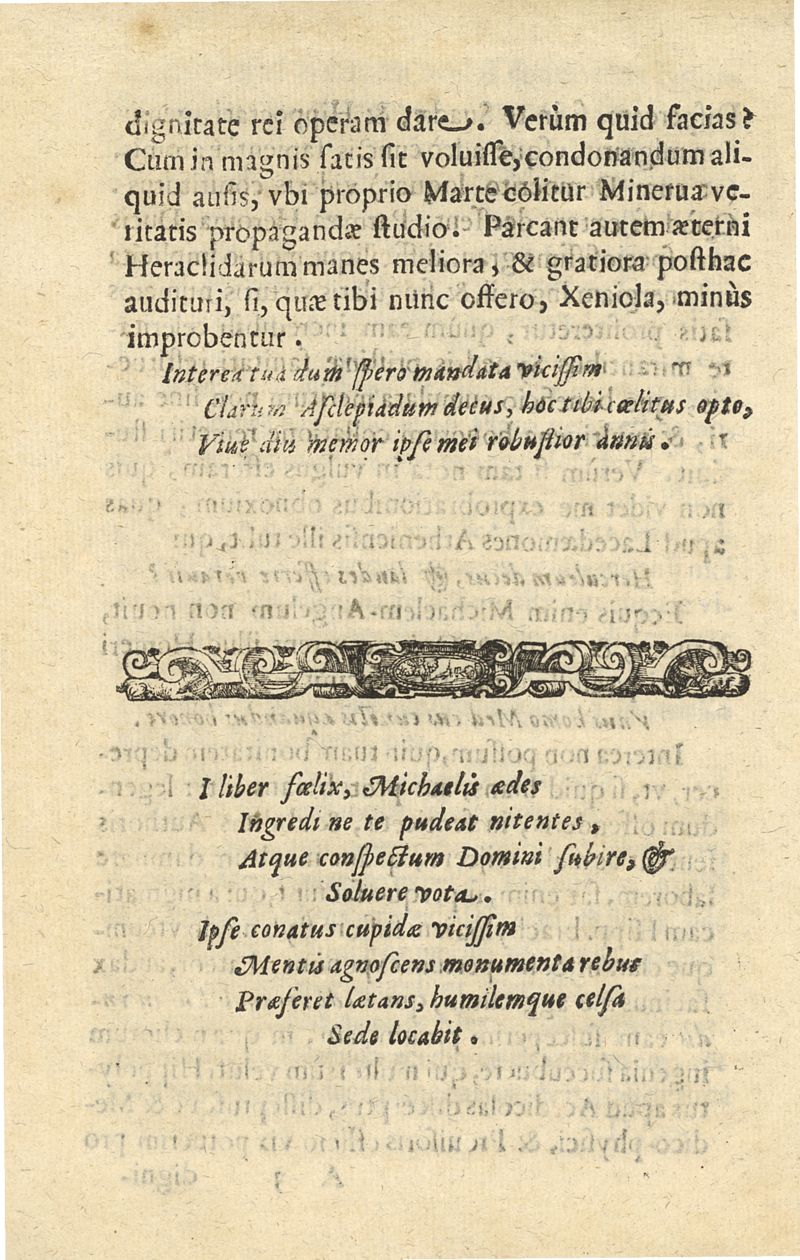 dignitate rei operam dare. Verùm quid facias?
Cùm in magnis satis sit voluiſſe, condonandum ali-
quid ausis, vbi proprio Marte colitur Minerua ve-
ritatis propagandæ ſtudio. Parcant autem æterni
Heraclidarum manes meliora, & gratiora poſthac
audituri, ſi, quæ tibi nunc offero, Xeniola, minùs
improbentur.
Interea tua dum ſpero mandata viciſſim
Clarum Aſclepiadum decus, hoc tibi cœlitus opto,
Viue diu memor ipſe mei robuſtior annis.
I liber fœlix, Michaelis ædes
Ingredi ne te pudeat nitentes,
Atque conſpectum Domini ſubire, &
Soluere vota.
Ipſe conatus cupidæ viciſſim
Mentis agnoſcens monumenta rebus
Præferet lætans, humilemque celſa
Sede locabit.